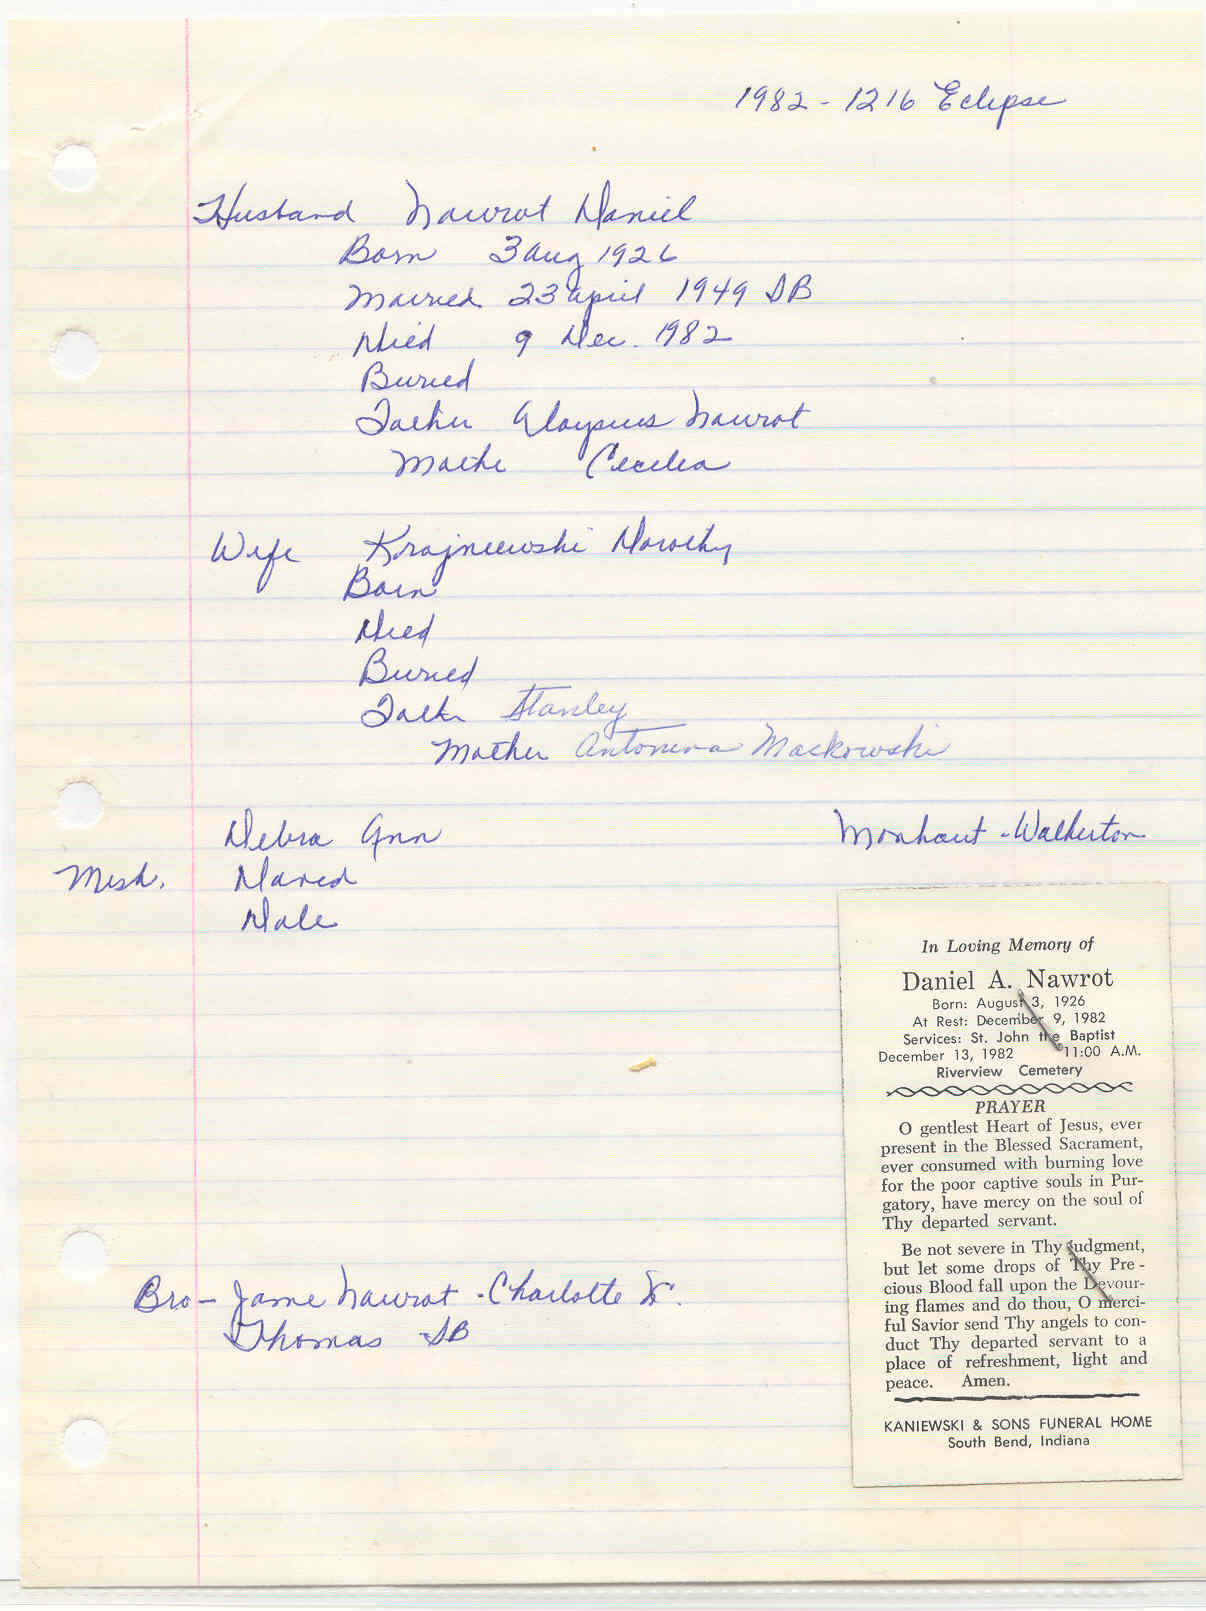 1982 - 1216 Eclipse
Husband Nawrot Daniel
Born 3 Aug 1926
Married 23 April 1949 SB
Died 9 Dec. 1982
Buried
Father Aloysius Nawrot
Mother Cecelia
Wife Krajniewski Dorothy
Born
Died
Buried
Father Stanley
Mother Antonina Mackowski
Debra Ann Monhaut - Walkerton
Mish. David
Dale
In Loving Memory of
Daniel A. Nawrot
Born: August 3, 1926
At Rest: December 9, 1982
Services: St. John the Baptist
December 13, 1982 11:00 A.M.
Riverview Cemetery
PRAYER
O gentlest Heart of Jesus, ever
present in the Blessed Sacrament,
ever consumed with burning love
for the poor captive souls in Pur-
gatory, have mercy on the soul of
Thy departed servant.
Be not severe in Thy judgment,
but let some drops of Thy Pre-
cious Blood fall upon the Devour-
ing flames and do thou, O merci-
ful Savior send Thy angels to con-
duct Thy departed servant to a
place of refreshment, light and
peace. Amen.
KANIEWSKI & SONS FUNERAL HOME
South Bend, Indiana
Bro - Jame Nawrot - Charlotte
Thomas SB